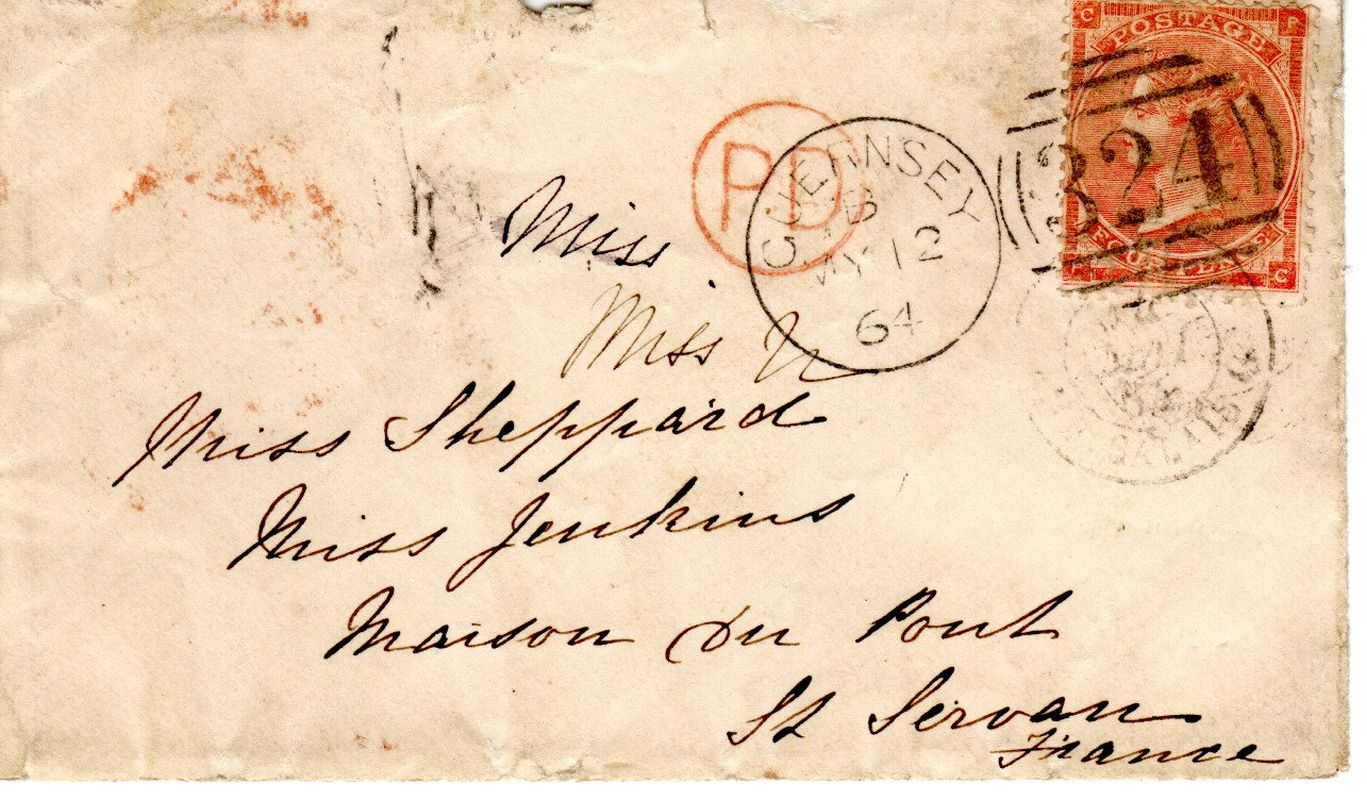 C P
POSTAGE
324
FOUR PENCE
C
PD
GUERNSEY
B
MY 12
64
CALAIS
Miss
Miss
Miss Sheppard
Miss Jenkins
Maison Du Pont
St Servan
France